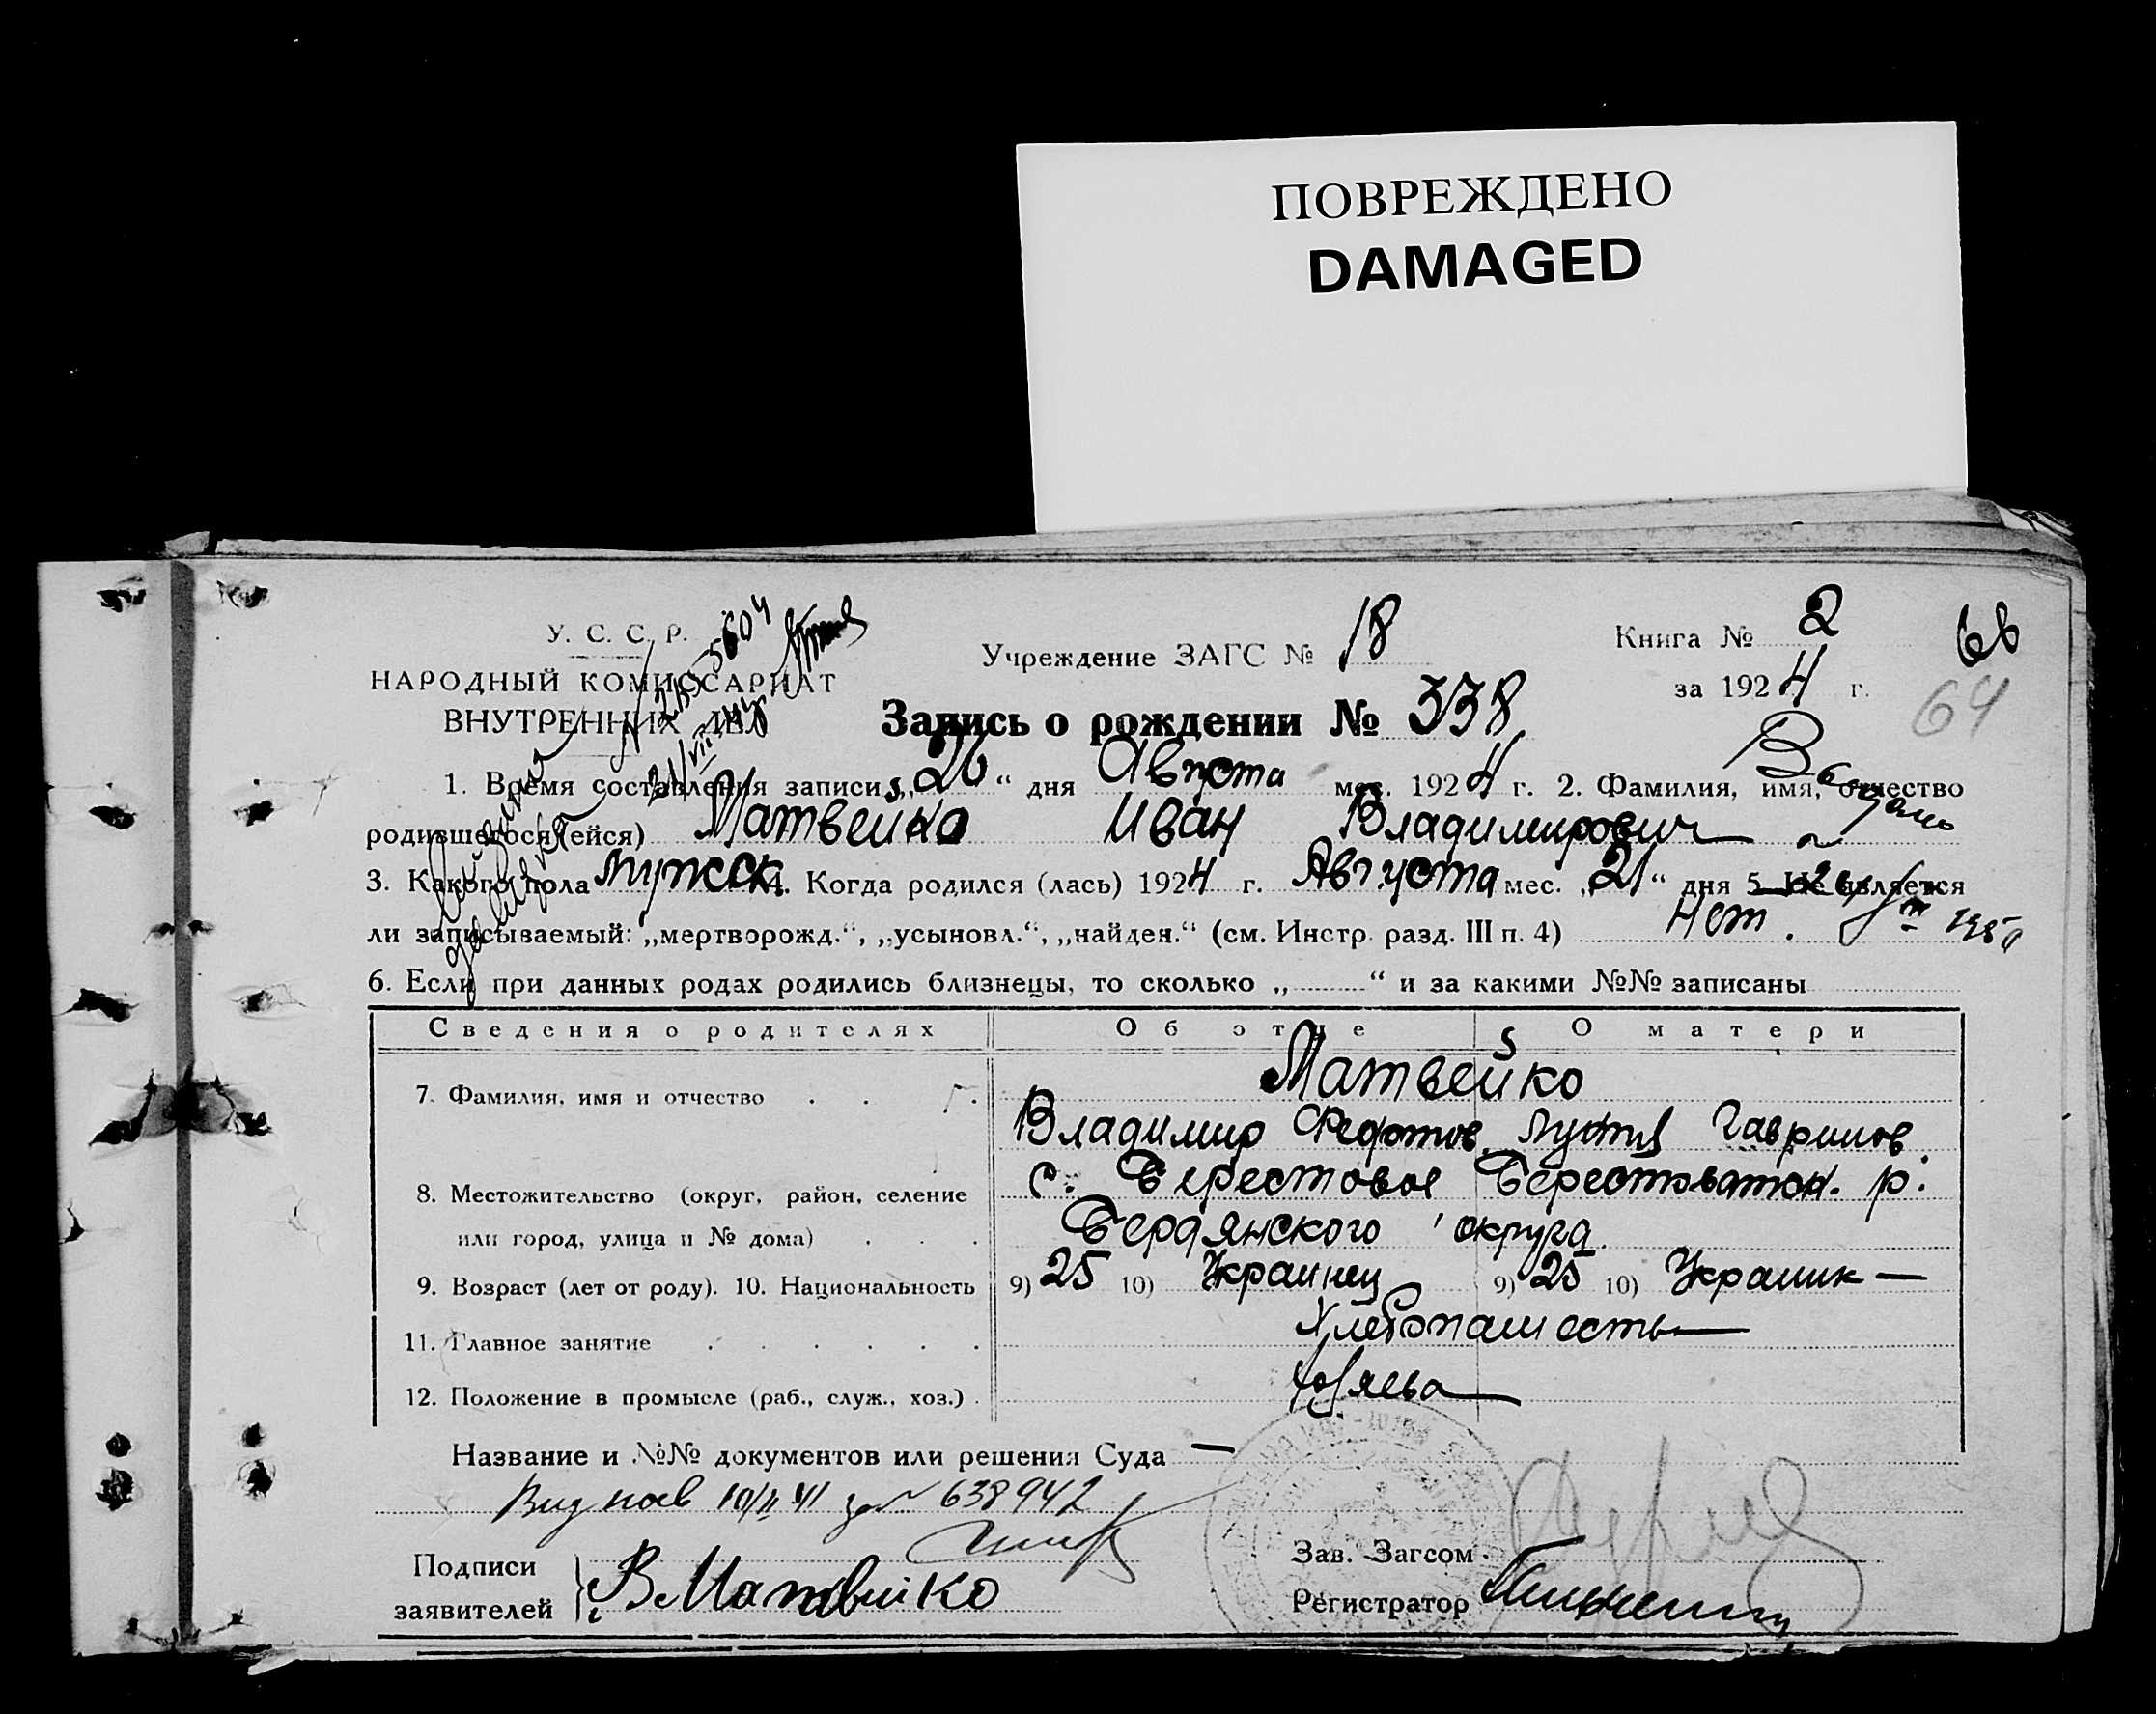 ПОВРЕЖДЕНО
DAMAGED
У. С. С. Р.
НАРОДНЫЙ КОМИССАРИАТ
ВНУТРЕННИХ ДЕЛ
Учреждение ЗАГС № 18
Книга № 2
66
за 1924 г.
64
Запись о рождении № 338
1. Время составления записи „26“ дня Августа мес. 1924 г. 2. Фамилия, имя, отчество
родившегося (ейся) Матвейко Иван Владимирович
3. Какого пола мужск. 4. Когда родился (лась) 1924 г. Августа мес. „21“ дня 5. Не является
ли записываемый: „мертворожд.“, „усыновл.“, „найден.“ (см. Инстр. разд. III п. 4) нет.
6. Если при данных родах родились близнецы, то сколько „ “ и за какими №№ записаны
Сведения о родителях Об отце О матери
7. Фамилия, имя и отчество Матвейко
Владимир Гаврилов.
8. Местожительство (округ, район, селение с. Берестовое Берестоватск. р.
или город, улица и № дома) Бердянского округа.
9. Возраст (лет от роду). 10. Национальность 9) 25 10) Украинец 9) 25 10) Украинк—
11. Главное занятие Хлебопашест—
12. Положение в промысле (раб., служ., хоз.)
Название и №№ документов или решения Суда —
638942
Подписи
заявителей В Матвейко
Зав. Загсом
Регистратор